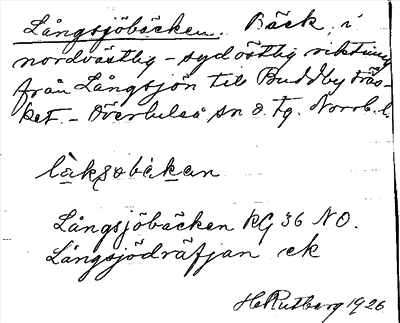 Långsjöbäcken. Bäck i
nordvästlig - sydöstlig riktning
från Långsjön till Buddby träs-
ket. - Överluleå sn o. tg. Norrb. l.
Långsjöbäcken KG 36 NO.
Långsjödräfjan ek
H. Rutberg 1926